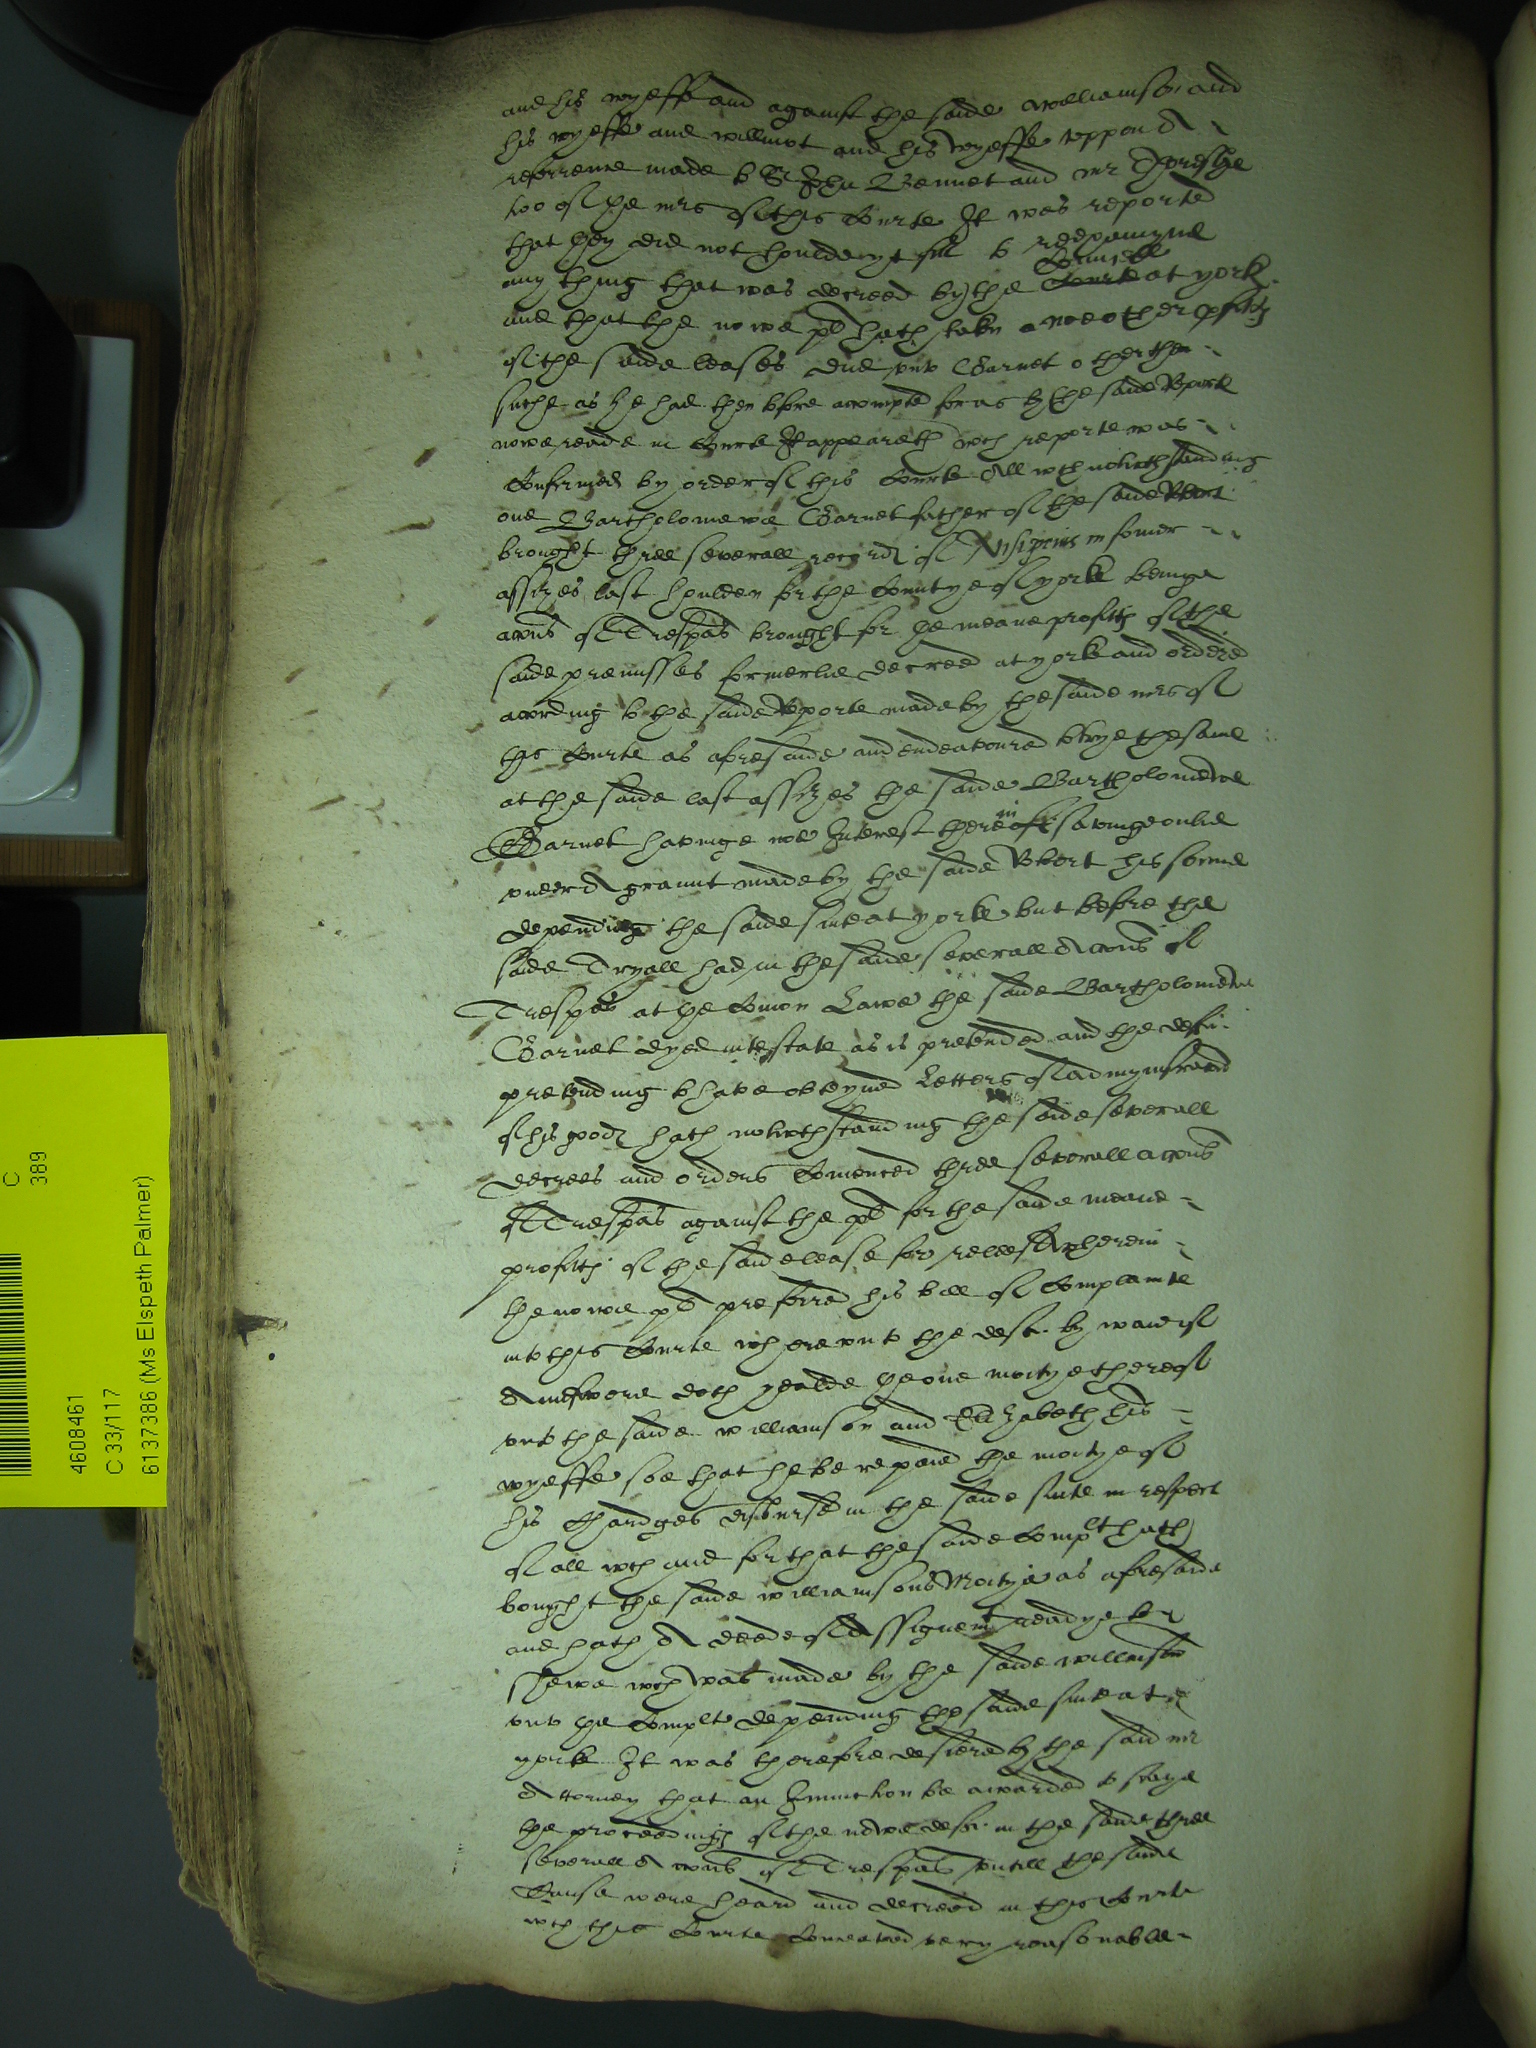 and his wyeffe and against the saide williamson and
his wyeffe and willmot and his wyeffe uppon A
referrence made to Sr John Bennet and mr
too of the mrs of this Courte It was reported
that they did not houlde yt fitt to reexamyne
any thing that was decreed by the Counsell at york
and that the nowe pl hath taken noe other profitts
of the saide leases due unto Garnet other then
suche as he had then before accompted for as by the saide Reporte
nowe reade in Courte It appeareth wch reporte was
Confirmed by order of this Courte All wch notwthstanding
one Bartholomewe Garnet father of the saide Robert
brought three severall records of Nisi prius in somer
assizes last houlden for the Countye of york beinge
accons of Trespas brought for the meane profitts of the
saide premisses formerlie decreed at york and ordered
according to the saide Reporte made by the saide mrs of
this Courte as aforesaide and endeavoured to trye the same
at the saide last assizes the saide Bartholomewe
Garnet havinge noe Interest therein savinge onlie
under A graunt made by the saide Robert his sonne
depending the saide suite at yorke but before the
saide Tryall had in the saide severall Accons of
Trespas at the Comon Lawe the saide Bartholomewe
Garnet dyed intestate as is pretended and the deft
pretending to have obteyned Letters of administracon
of his goods hath notwthstanding the saide severall
decrees and orders Comenced three severall accons
of Trespas against the pl for the saide meane
profitts of the saide lease for releef wherein
the nowe pl preferred his bill of Complainte
into this Courte wherevnto the deft by waie of
Answere doth yealde the one moitye thereof
vnto the saide williamson and Elizabeth his
wyeffe soe that he be repaid the moitye of
his Chardges disbursed in the saide suite in respect
of all wch and for that the saide Complt hath
bought the saide williamsons Moitye as aforesaide
and hath A deede of Assignemt readye to
shewe wch was made by the saide williamson
vnto the Complt depending the saide suite at
yorke It was therefore desiered by the said mr
Attorney that an Iniunction be awarded to staye
the proceedings of the nowe deft in the saide three
severall Accons of Trespas vntill the same
Cause were heard and decreed in this Courte
wch this Courte Conceaved very reasonable
C
389
4608461
C 33/117
6137386 (Ms Elspeth Palmer)